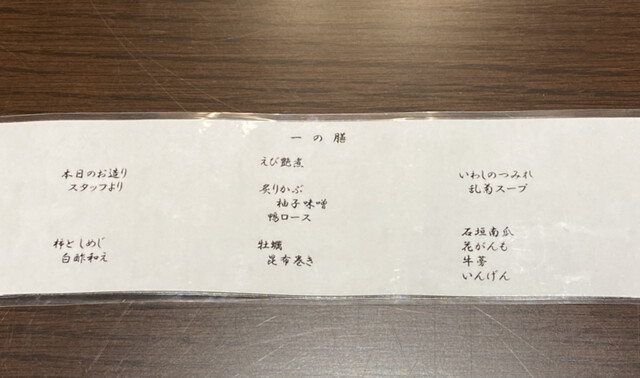 一の膳
本日のお造り
スタッフより
柿としめじ
白酢和え
えび艶煮
炙りかぶ
柚子味噌
鴨ロース
牡蠣
昆布巻き
いわしのつみれ
乱菊スープ
石垣南瓜
花がんも
牛蒡
いんげん